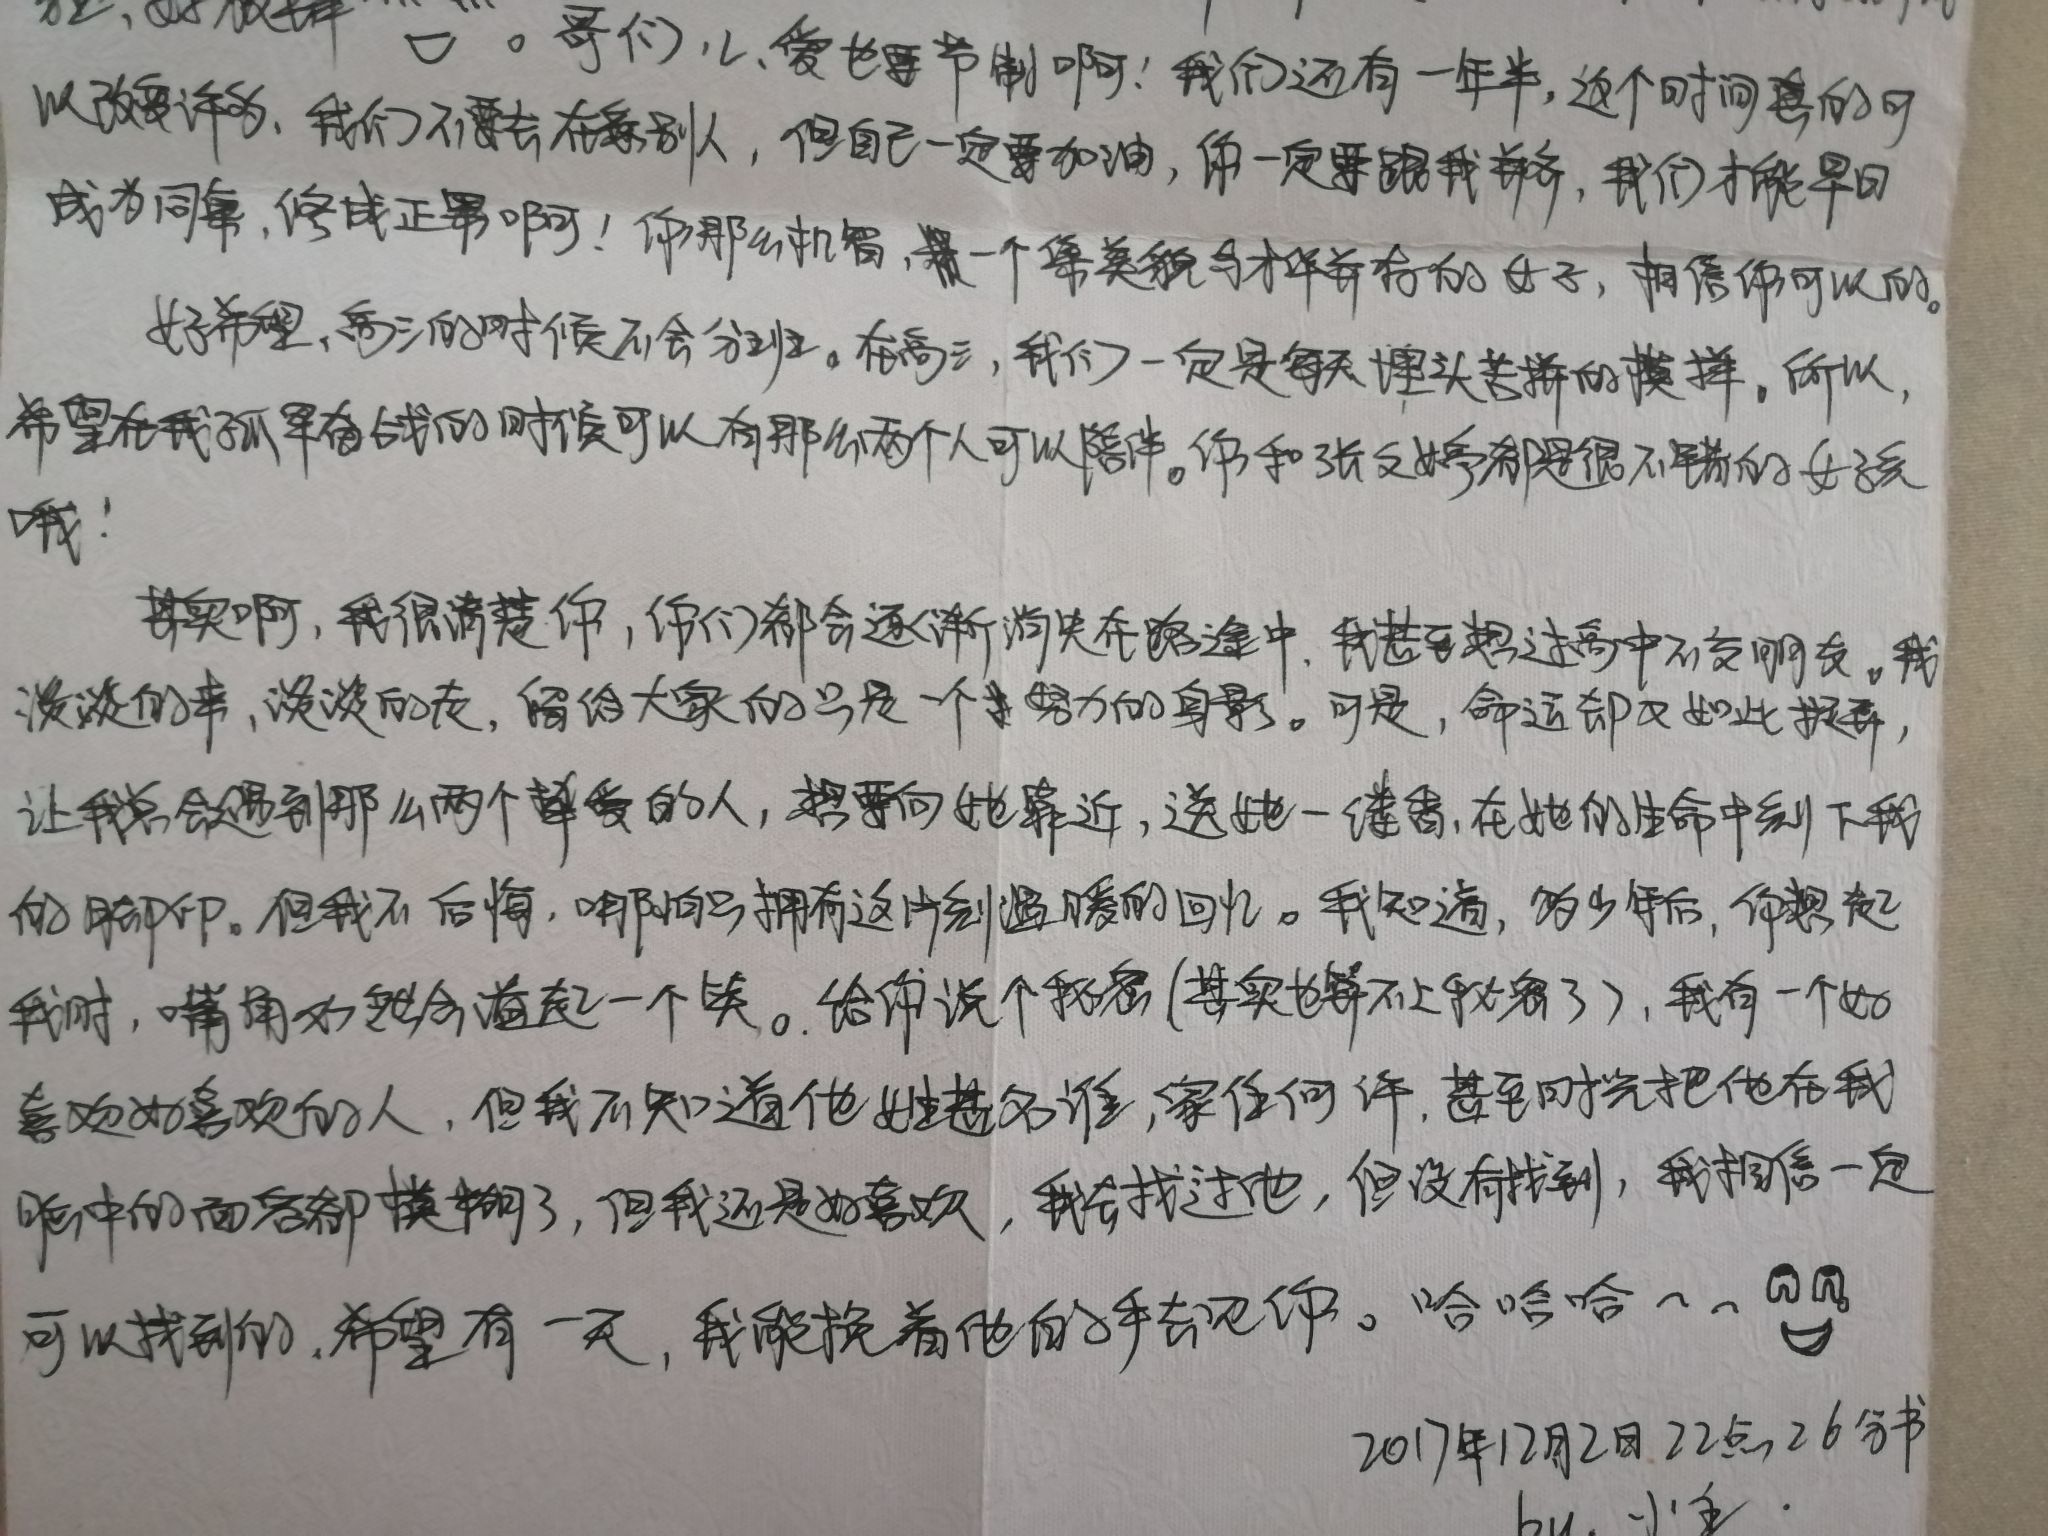 哥们儿、爱也要节制啊！我们还有一年半，这个时间真的可
以改变许多、我们不要去在乎别人，但自己一定要加油，你一定要跟我并齐，我们才能早日
成为同桌，修成正果啊！你那么机智，是一个集美貌与才华并存的女子，相信你可以的。
好希望，高三的时候不会分班。在高三，我们一定是每天埋头苦拼的模样。所以，
希望在我孤军奋战的时候可以有那么两个人可以陪伴。你和张文婷都是很不错的女孩
哦！
其实啊，我很清楚你，你们都会逐渐消失在路途中、我甚至想过高中不交朋友。我
淡淡的来，淡淡的去，留给大家的只是一个努力的身影。可是，命运却又如此捉弄，
让我总会遇到那么两个挚爱的人，想要向她靠近，送她一缕香，在她的生命中刻下我
的脚印。但我不后悔，哪怕只拥有这片刻温暖的回忆。我知道，多少年后，你想起
我时，嘴角必然会荡起一个笑。给你说个秘密（其实也算不上秘密了），我有一个好
喜欢好喜欢的人，但我不知道他姓甚名谁，家住何许，甚至时光把他在我
脑中的面容都模糊了，但我还是好喜欢，我去找过他，但没有找到，我相信一定
可以找到的，希望有一天，我能挽着他的手去见你。哈哈哈~~
2017年12月2日22点26分书
by.